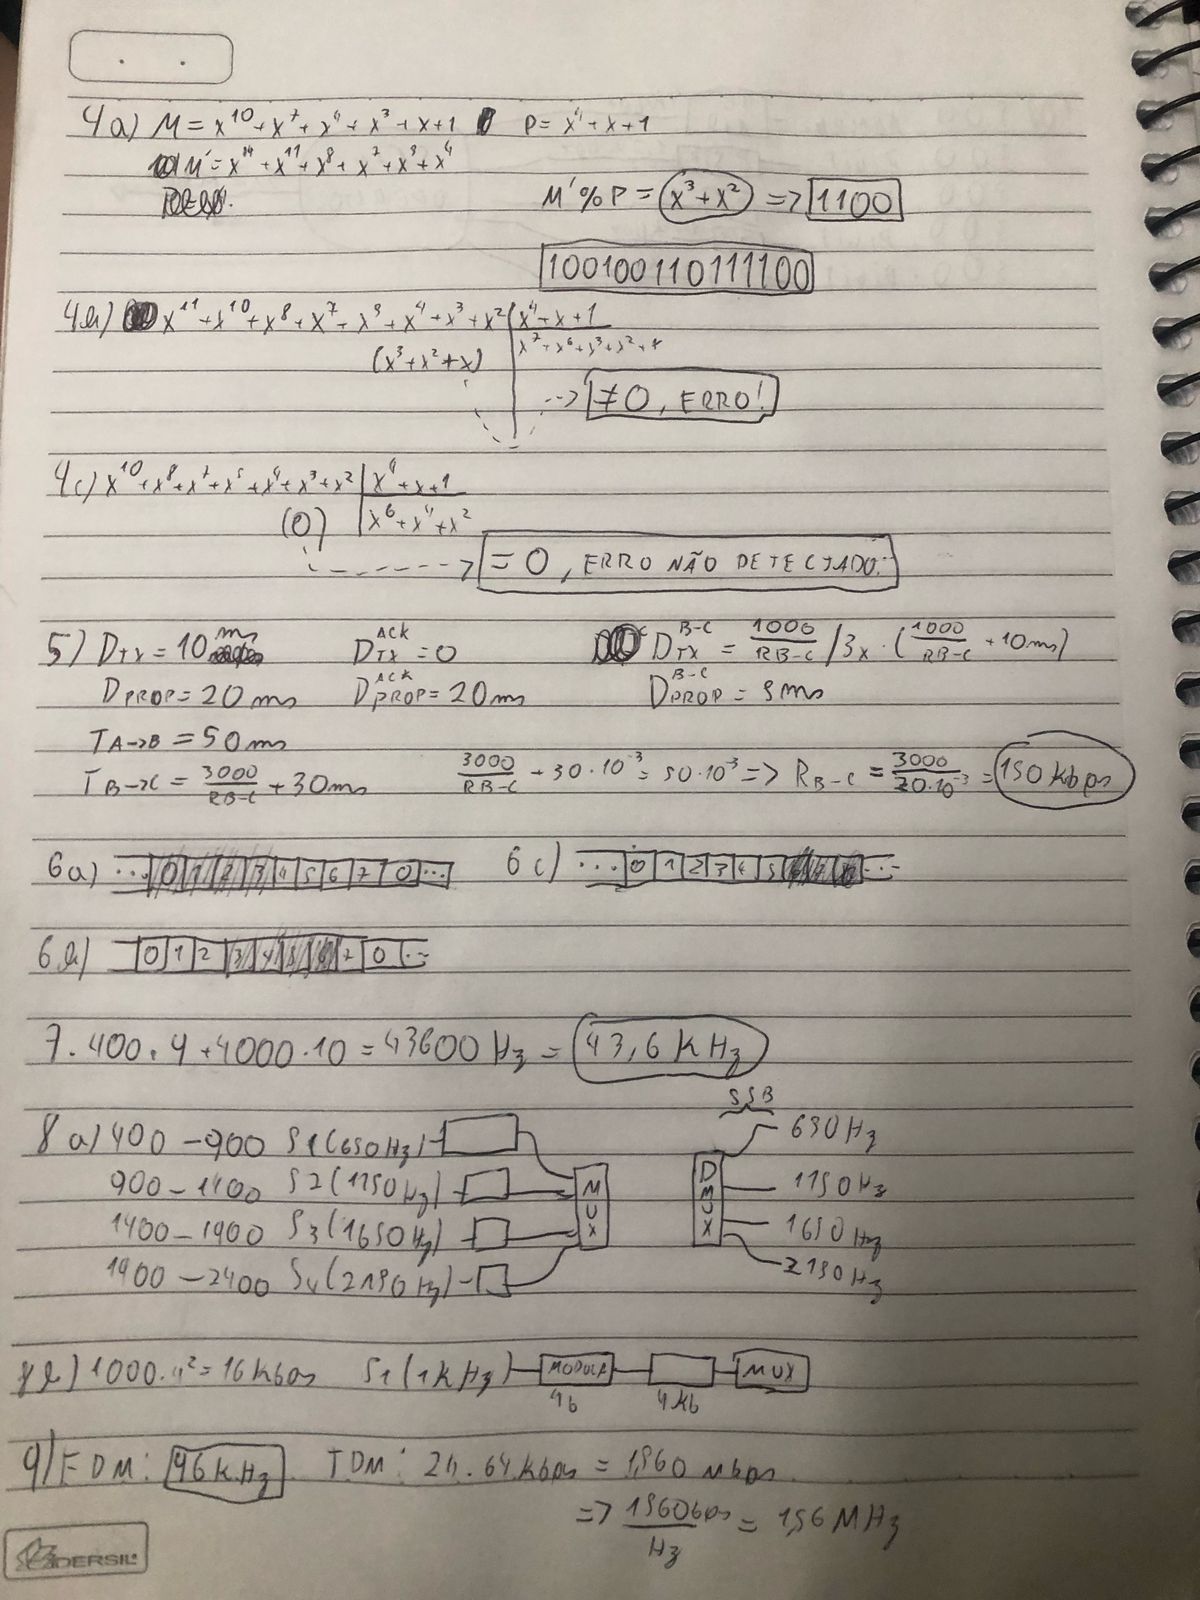 4a) M = x^10 + x^7 + x^4 + x^3 + x + 1   P = x^4 + x + 1
M' = x^14 + x^11 + x^8 + x^7 + x^5 + x^4
M' % P = x^3 + x^2 => 1100
100100110111100
4b) x^11 + x^10 + x^8 + x^7 + x^5 + x^4 + x^3 + x^2 | x^4 + x + 1
(x^3 + x^2 + x) x^7 + x^6 + x^3 + x^2 +
--> ≠ 0, ERRO!
4c) x^10 + x^8 + x^7 + x^5 + x^4 + x^3 + x^2 | x^4 + x + 1
(0) x^6 + x^4 + x^2
= 0, ERRO NÃO DETECTADO.
5) DTX = 10 ms   DTX^ACK = 0   DTX^B-C = 1000/RB-C / 3x · (1000/RB-C + 10ms)
DPROP = 20 ms   DPROP^ACK = 20 ms   DPROP^B-C = 5ms
TA->B = 50 ms
TB->C = 3000/RB-C + 30 ms   3000/RB-C + 30·10^-3 = 50·10^-3 => RB-C = 3000/20·10^-3 = 150 kbps
6a) ... 0 1 2 3 4 5 6 7 0 ...   6c) ... 0 1 2 3 4 5 6 7 0 ...
6b) 0 1 2 3 4 5 6 7 0 ...
7. 400·9 + 4000·10 = 43600 Hz = 43,6 KHz
SSB
8a) 400 - 900 S1 (650Hz) 650 Hz
900 - 1400 S2 (1150Hz) MUX DMUX 1150 Hz
1400 - 1900 S3 (1650Hz) 1650 Hz
1900 - 2400 S4 (2150Hz) 2150Hz
8b) 1000·4² = 16 kbps   S1 (1kHz) MODULA MUX
4b 4kb
9) FDM: 96 KHz   TDM: 24·64 kbps = 1,560 mbps
=> 1560bps/Hz = 1,56 MHz
DERSIL